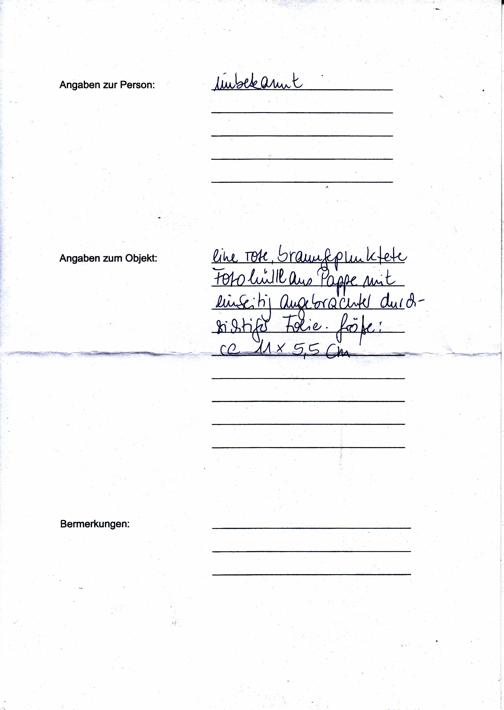 Angaben zur Person: unbekannt
Angaben zum Objekt: eine rote, braungepunktete
Fotohülle aus Pappe mit
einseitig angebrachter durch-
sichtiger Folie. Größe:
ca 11 x 5,5 cm
Bermerkungen: